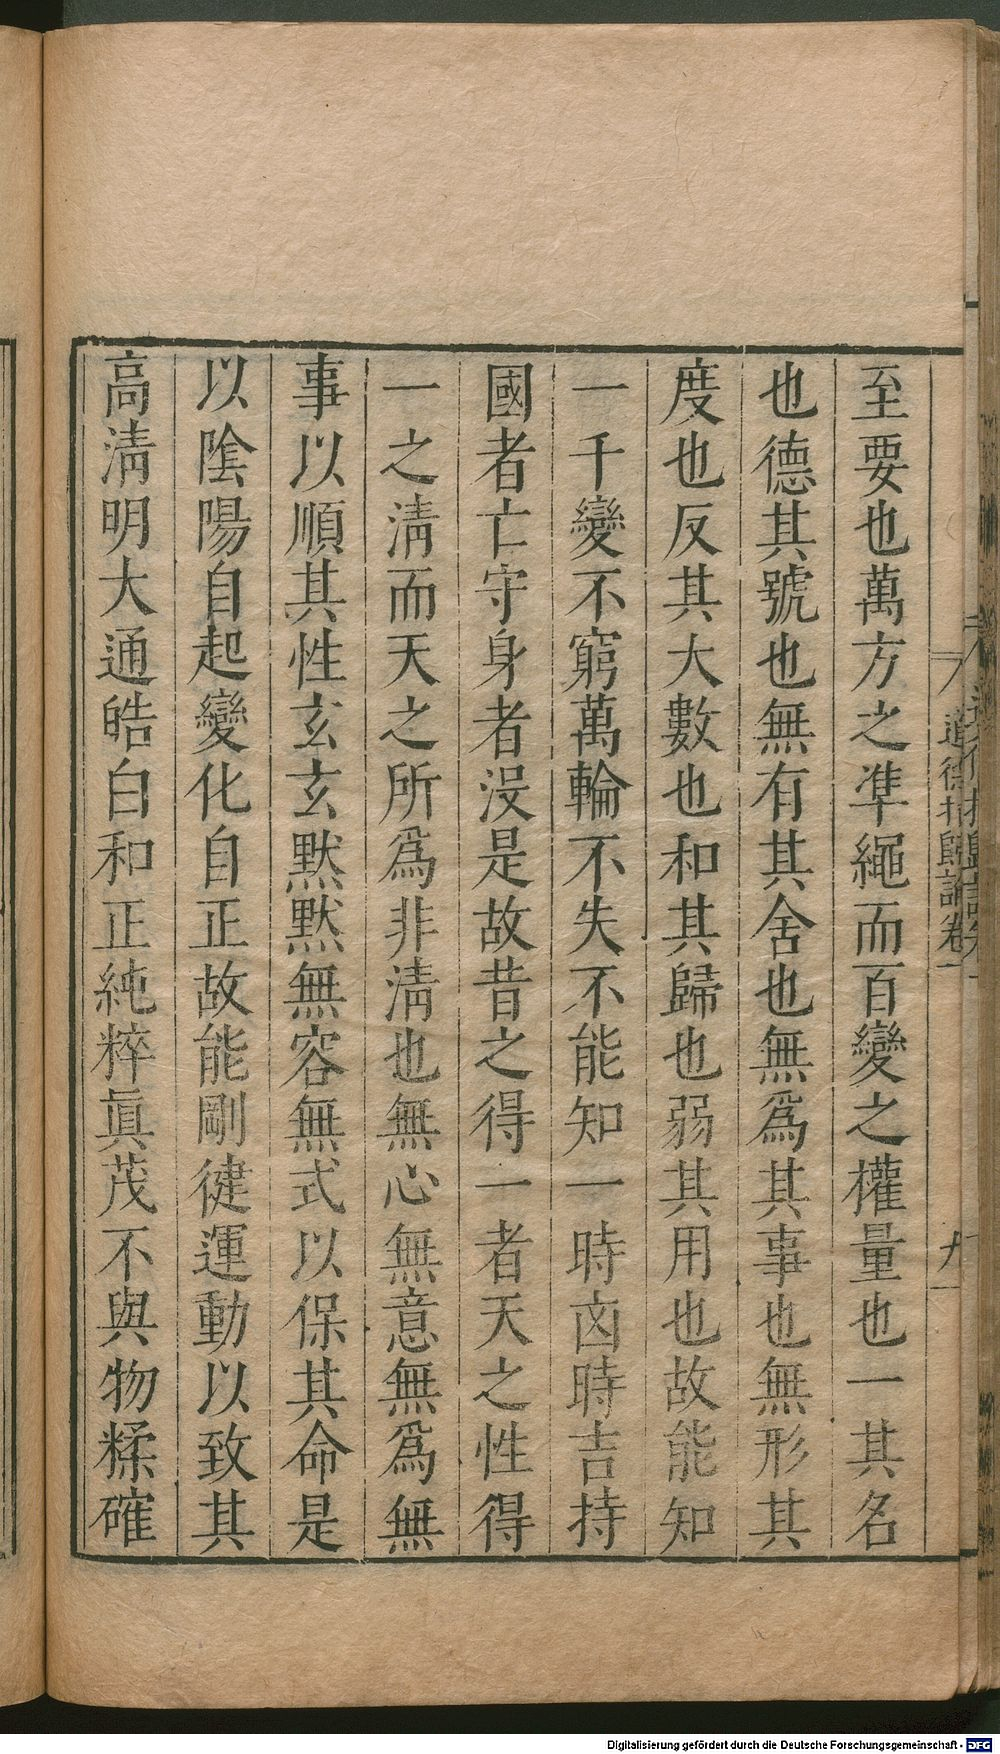 至要也萬方之準繩而百變之權量也一其名
也德其號也無有其舍也無爲其事也無形其
度也反其大數也和其歸也弱其用也故能知
一千變不窮萬輪不失不能知一時凶時吉持
國者亡守身者沒是故昔之得一者天之性得
一之淸而天之所爲非淸也無心無意無爲無
事以順其性玄玄默默無容無式以保其命是
以陰陽自起變化自正故能剛健運動以致其
高淸明大通皓白和正純粹眞茂不與物糅確
道德指歸論卷一
Digitalisierung gefördert durch die Deutsche Forschungsgemeinschaft - DFG